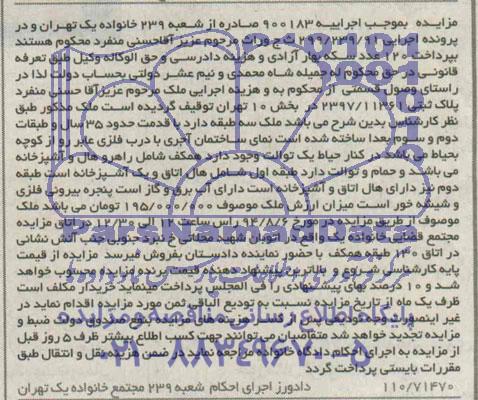 مزایده بموجب اجراییه 900183 صادره از شعبه 239 خانواده یک تهران و در
پرونده اجرایی 299/239/91 ث ج وراث مرحوم عزیز آقاحسنی منفرد محکوم هستند
بپرداخت 120 عدد سکه بهار آزادی و هزینه دادرسی و حق الوکاله وکیل طبق تعرفه
قانونی در حق محکوم له جمیله شاه محمدی و نیم عشر دولتی بحساب دولت لذا در
راستای وصول قسمتی از محکوم به و هزینه اجرایی ملک مرحوم عزیز آقا حسنی منفرد
پلاک ثبتی 2397/11369 در بخش 10 تهران توقیف گردیده است ملک مذکور طبق
نظر کارشناس بدین شرح می باشد ملک سه طبقه دارد با قدمت حدود 35 سال و طبقات
دوم و سوم بعدا ساخته شده است نمای ساختمان آجری با درب فلزی عابر رو از کوچه
بحیاط می باشد در کنار حیاط یک توالت وجود دارد همکف شامل راهرو هال و آشپزخانه
می باشد و حمام و توالت دارد طبقه اول شامل هال و اتاق و آشپزخانه است طبقه
دوم نیز دارای هال اتاق و آشپزخانه است دارای آب برق و گاز است پنجره بیرونی فلزی
و شیشه خور است میزان ارزش ملک موصوف 195/000/000 تومان می باشد ملک
موصوف از طریق مزایده در مورخ 94/8/6 راس ساعت 12 الی 12/30 در اتاق مزایده
مجتمع قضایی خانواده یک واقع در اتوبان شهید محلاتی خ نبرد جنوبی جنب آتش نشانی
در اتاق 130 طبقه همکف با حضور نماینده دادستان بفروش میرسد مزایده از قیمت
پایه کارشناسی شروع و بالاترین پیشنهاد دهنده قیمت برنده مزایده محسوب خواهد
شد و 10 درصد بهای پیشنهادی را فی المجلس پرداخت مینماید خریدار مکلف است
ظرف یک ماه از تاریخ مزایده نسبت به تودیع الباقی ثمن مورد مزایده اقدام نماید در
غیر اینصورت وجه تودیعی پس از کسر هزینه های مزایده بنفع صندوق دولت ضبط و
مزایده تجدید خواهد شد متقاضیان می توانند جهت کسب اطلاع بیشتر ظرف 5 روز قبل
از مزایده به اجرای احکام دادگاه خانواده مراجعه نماید در ضمن هزینه نقل و انتقال طبق
مقررات بایستی پرداخت گردد
110/71470 دادورز اجرای احکام شعبه 239 مجتمع خانواده یک تهران
ParsNamadData
پایگاه اطلاع رسانی مناقصه و مزایده
021-88349670-5